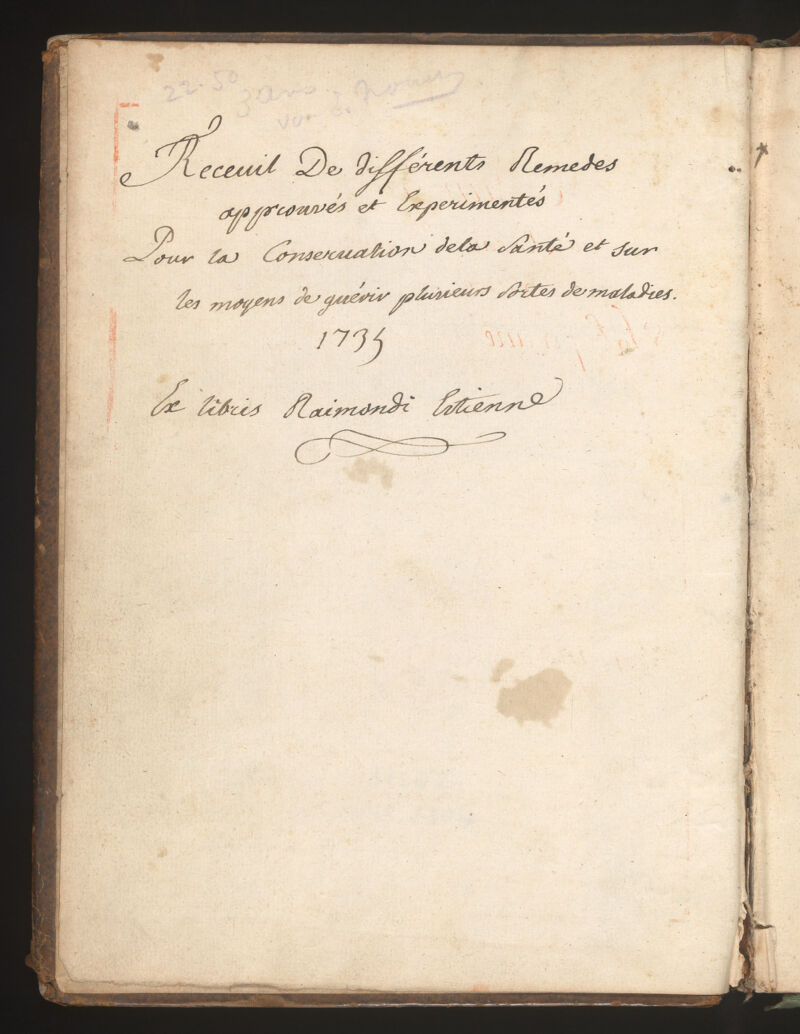 22-50
Receuil De différents Remedes
approuvés et Experimentés
Pour la Conseruation dela Santé et sur
les moyens de guérir plusieurs sortes de maladies.
1735
Ex libris Raimondi Estienne